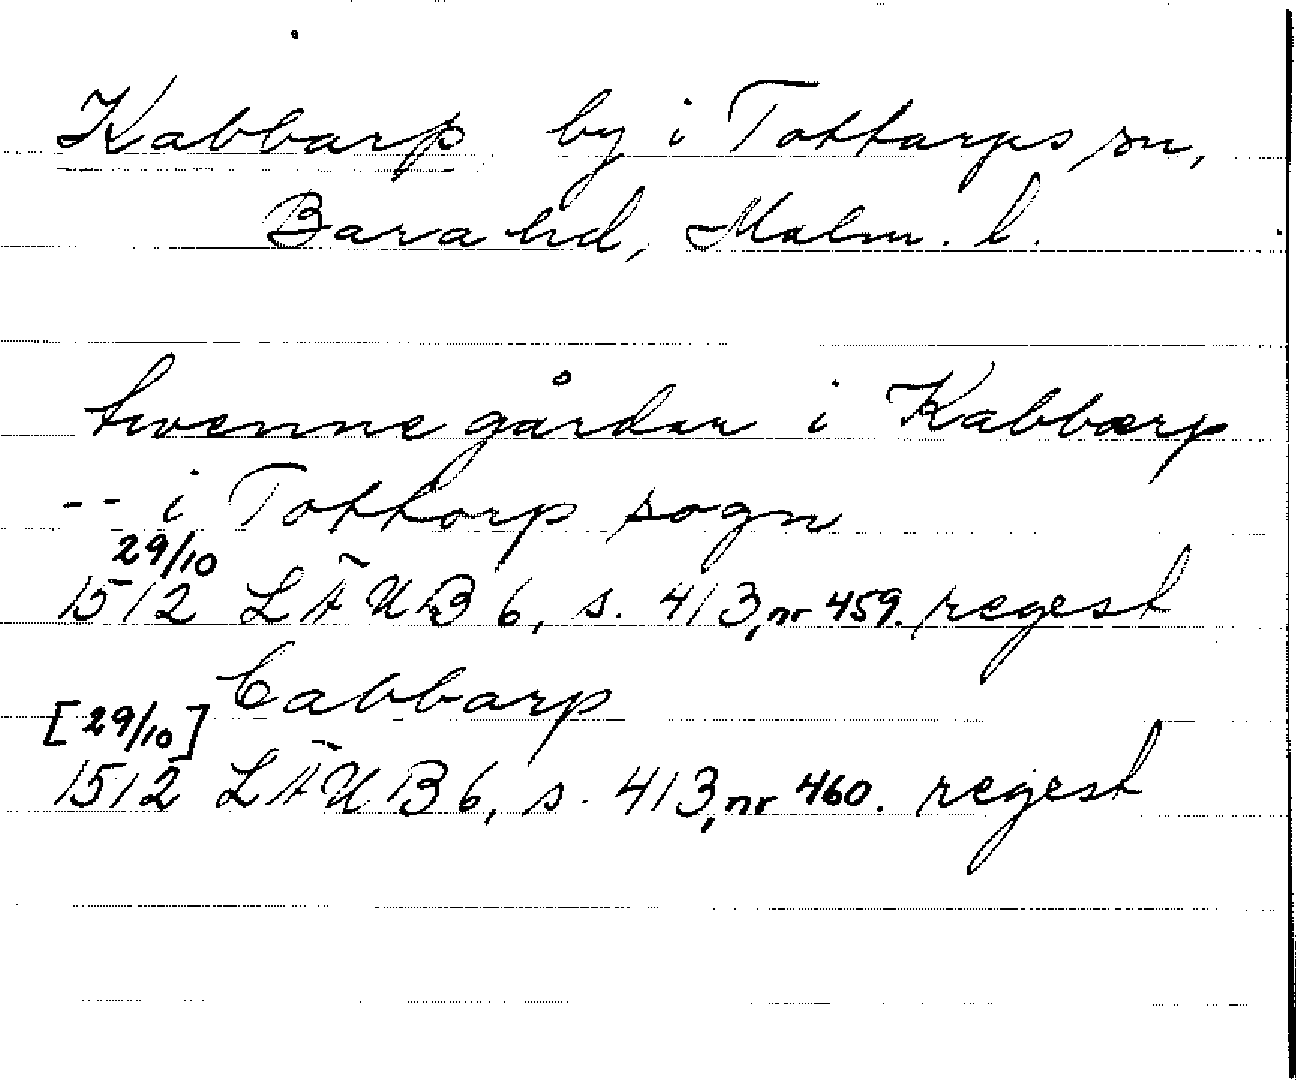 Kabbarp by i Tottarps sn,
Bara hd, Malm. l.
twenne gårdar i Kabbarp
-- i Tottorp sogn
29/10
1512 LÄUB 6, s. 413, nr 459. regest
Cabbarp
[29/10]
1512 LÄUB 6, s. 413, nr 460. regest